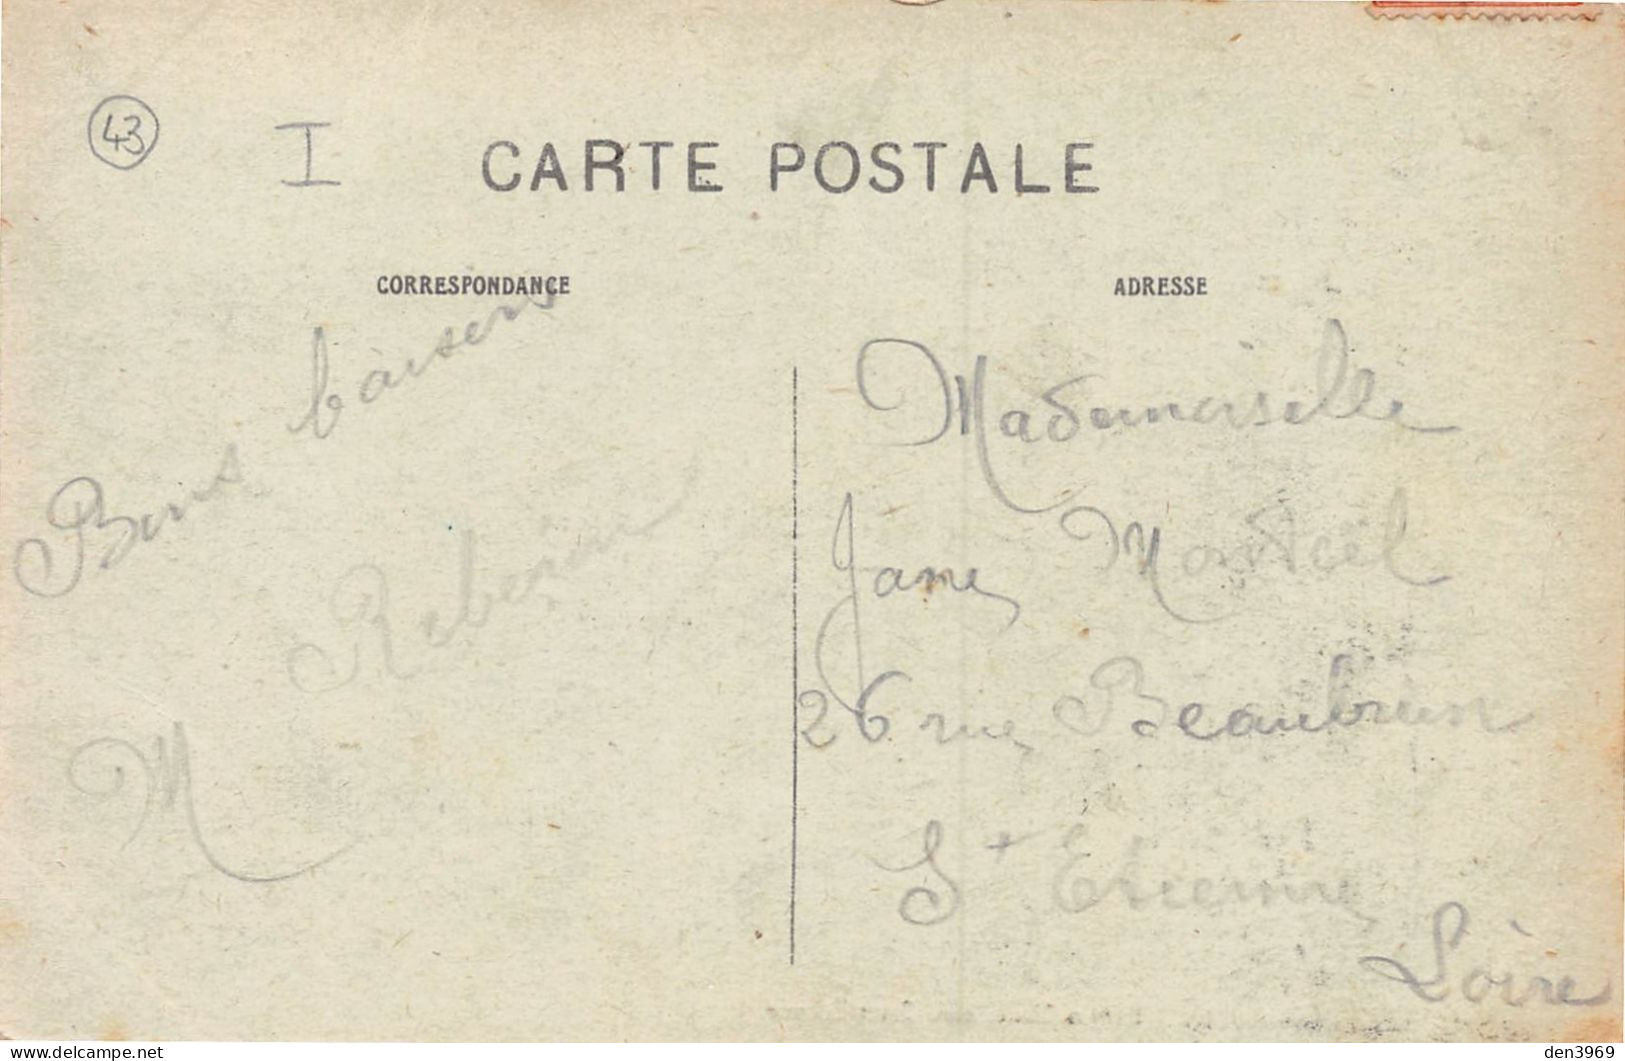 43
I
CARTE POSTALE
CORRESPONDANCE
Bons baisers
M
ADRESSE
Mademoiselle
Jane Monteil
26 rue Beaubrun
St Etienne
Loire
delcampe.net
den3969